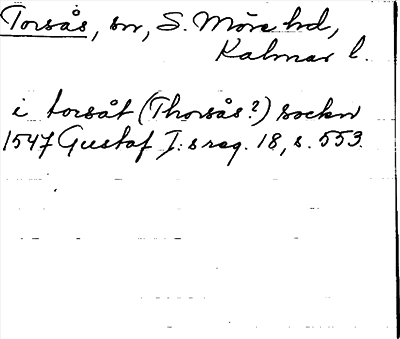 Torsås, sn, S. Möre hd,
Kalmar l.
i torsåt (Thorsås?) socken
1547 Gustaf I:s reg. 18, s. 553.